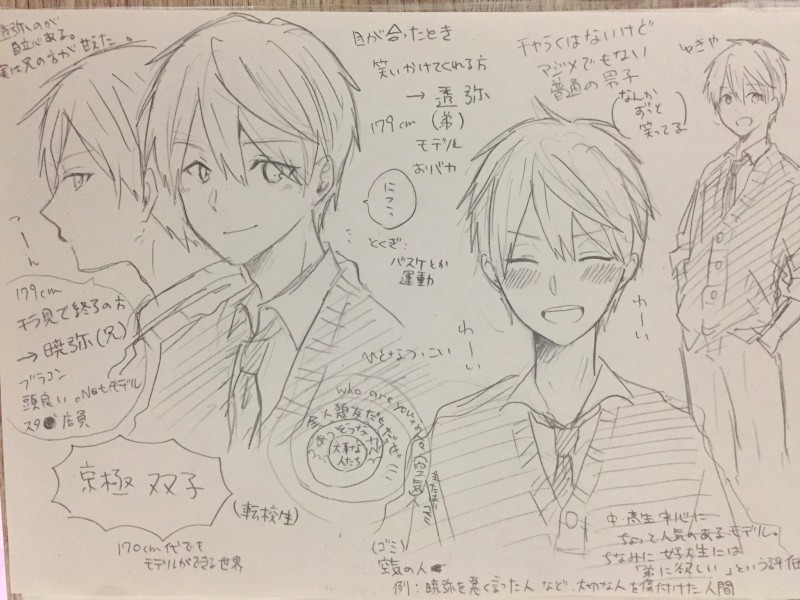 透弥のが
自立心ある。
実は兄の方が甘えた。
目が合ったとき
笑いかけてくれる方
→ 透弥
(弟)
179cm
モデル
おバカ
にこっ
とくぎ:
バスケとか
運動
ひとなつっこい
チャラくはないけど
マジメでもない
普通の男子
(なんか
ずっと
笑ってる)
ゆきや
つーん
179cm
チラ見で終了の方
→ 暁弥(兄)
ブラコン
頭良い。Netモデル
スタ 店員
京極 双子
(転校生)
170cm代でも
モデルができる世界
わーい
わーい
who are you
全人類友だちだぜ!!!
大事な
人たち
(ゴミ)
空気の人
例:暁弥を悪く言った人など、大切な人を傷付けた人間
中・高生中心に
ちょっと人気のあるモデル。
ちなみに女子大生には
「弟に欲しい」という評価